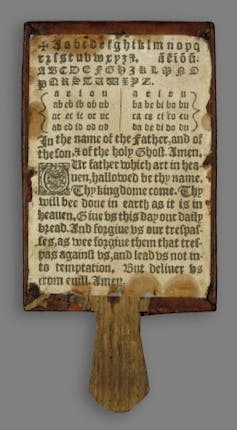 ✠ A a b c d e f g h i k l m n o p q
r ꝛ s ſ t u v w x y z ꝛ. a e i o u
A B C D E F G H I K L M N O
P Q R S T U W X Y Z.
a e i o u a e i o u
ab eb ib ob ub ba be bi bo bu
ac ec ic oc uc ca ce ci co cu
ad ed id od ud da de di do du
In the name of the Father, and of
the ſon, & of the holy Ghoſt. Amen.
OUr father which art in hea-
uen, hallowed be thy name.
Thy kingdome come. Thy
will bee done in earth as it is in
heauen. Giue vs this day our daily
bread. And forgiue vs our treſpaſ-
ſes, as wee forgiue them that treſ-
pas againſt vs, and lead vs not in-
to temptation. But deliuer vs
from euill. Amen.